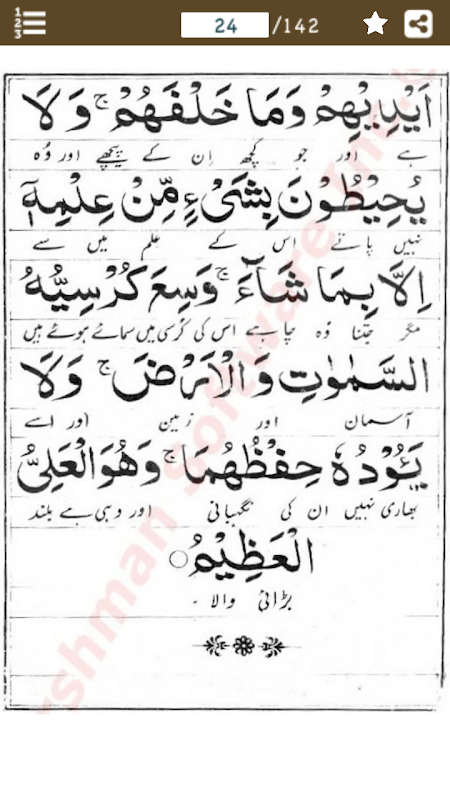 1
2
3
24 /142
اَيْدِيْهِمْ وَمَا خَلْفَهُمْ ۚ وَلَا
ہے اور جو کچھ اِن کے پیچھے اور وُہ
يُحِيْطُوْنَ بِشَىْءٍ مِّنْ عِلْمِهٖٓ
نہیں پاتے اس کے علم میں سے
اِلَّا بِمَا شَآءَ ۚ وَسِعَ كُرْسِيُّهُ
مگر جتنا وُہ چاہے اس کی کُرسی میں سمائے ہوئے ہیں
السَّمٰوٰتِ وَالْاَرْضَ ۚ وَلَا
آسمان اور زمین اور اسے
يَـُٔوْدُهٗ حِفْظُهُمَا ۚ وَهُوَ الْعَلِىُّ
بھاری نہیں ان کی نگہبانی اور وہی ہے بلند
الْعَظِيْمُ ○
بڑائی والا ۔
shman Software Inc.